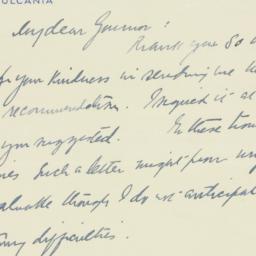 ULCANIA
My dear Governor:
Thank you so
for your kindness in sending me
recommendation. I signed it a
you suggested. In these trou
such a letter might prove
valuable though I do not anticipa
any difficulties.